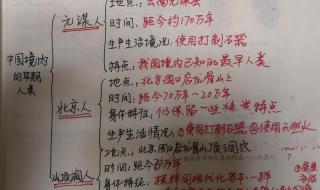 地点：云南元谋县
元谋人
时间：距今约170万年
生产生活情况：使用打制石器
特点：我国境内已知的最早人类
中国境内
的早期
人类
地点：北京周口店龙骨山
北京人
时间：距今70万~20万年
身体特征：仍保留一些猿类特点
生产生活情况：①使用打制石器 ②使用天然火
地点：北京周口店龙骨山顶部洞穴
山顶洞人
时间：距今3万年
身体特征：模样同现代人基本一样